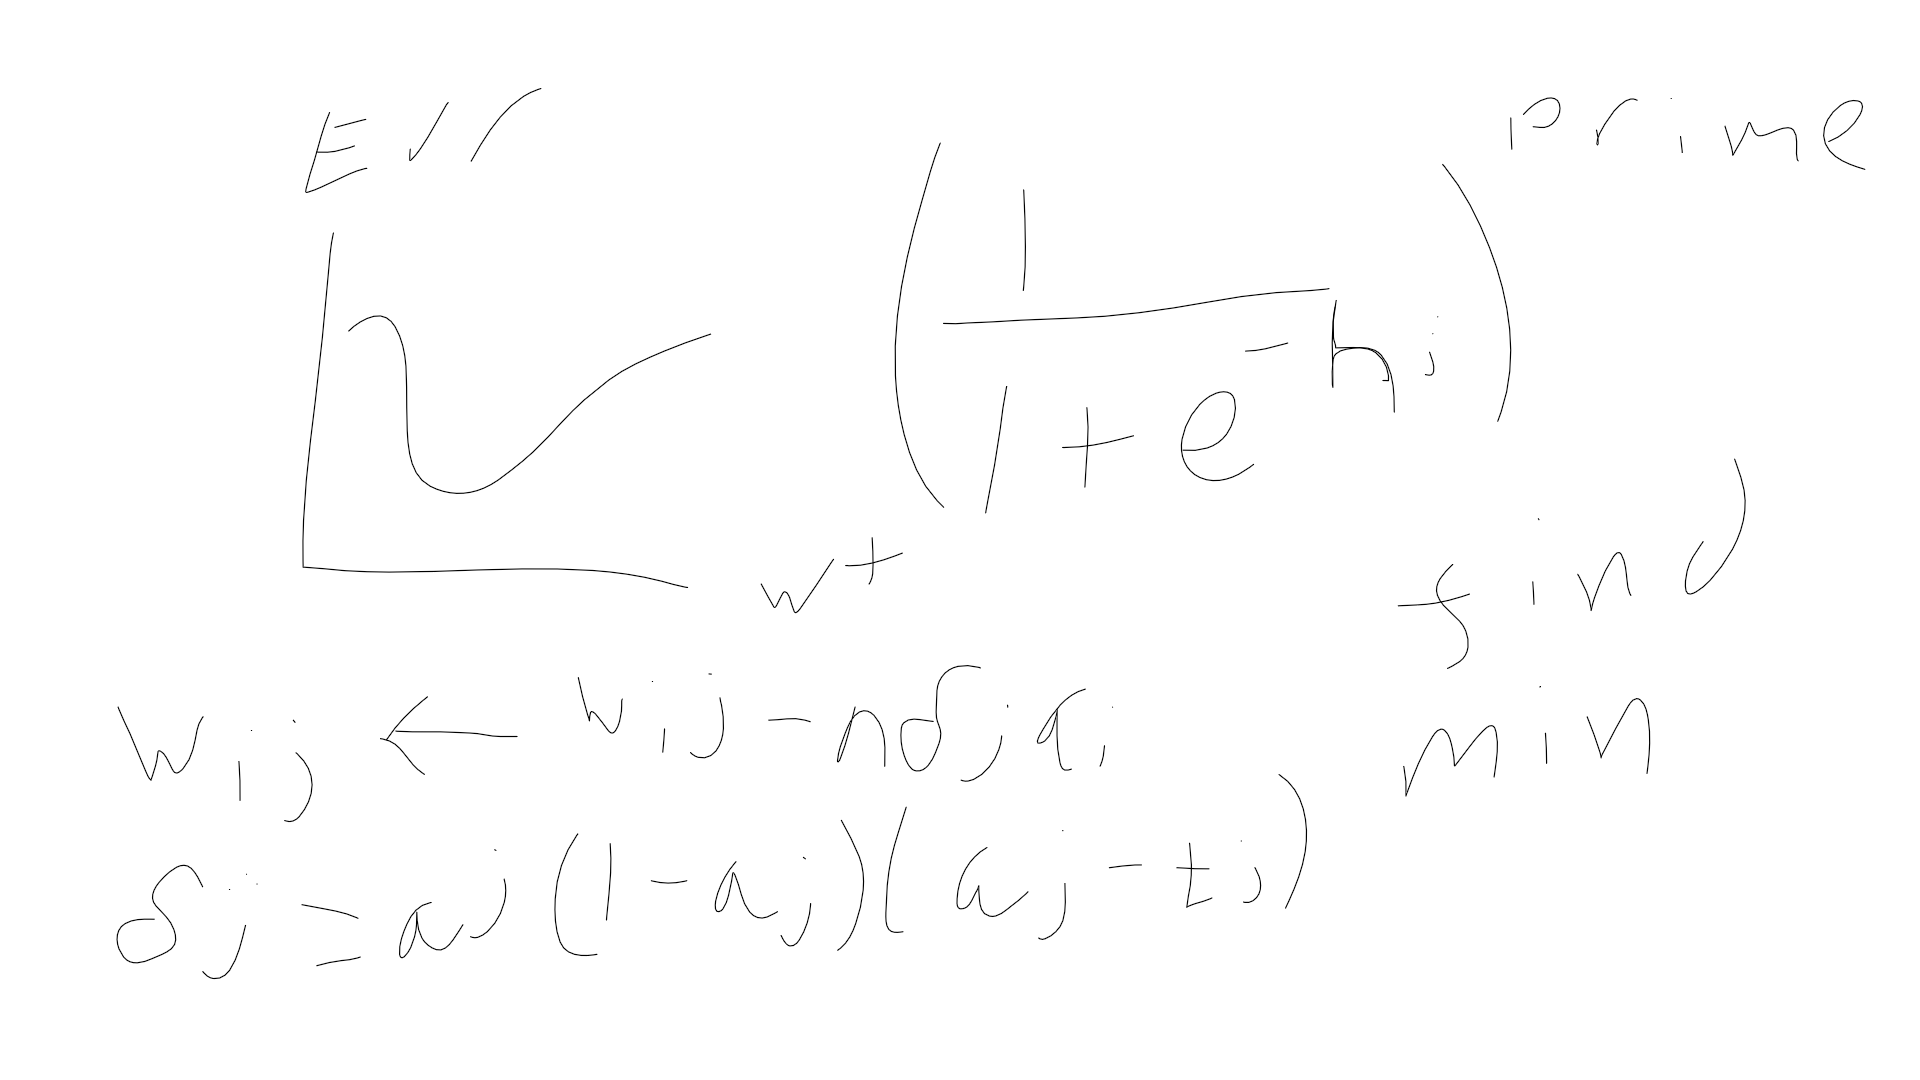 Err
( 1 / 1 + e^-h_j ) prime
w+
find
min
w_ij ← w_ij - ηδ_j x_i
δ_j = a_j (1 - a_j)(a_j - t_j)